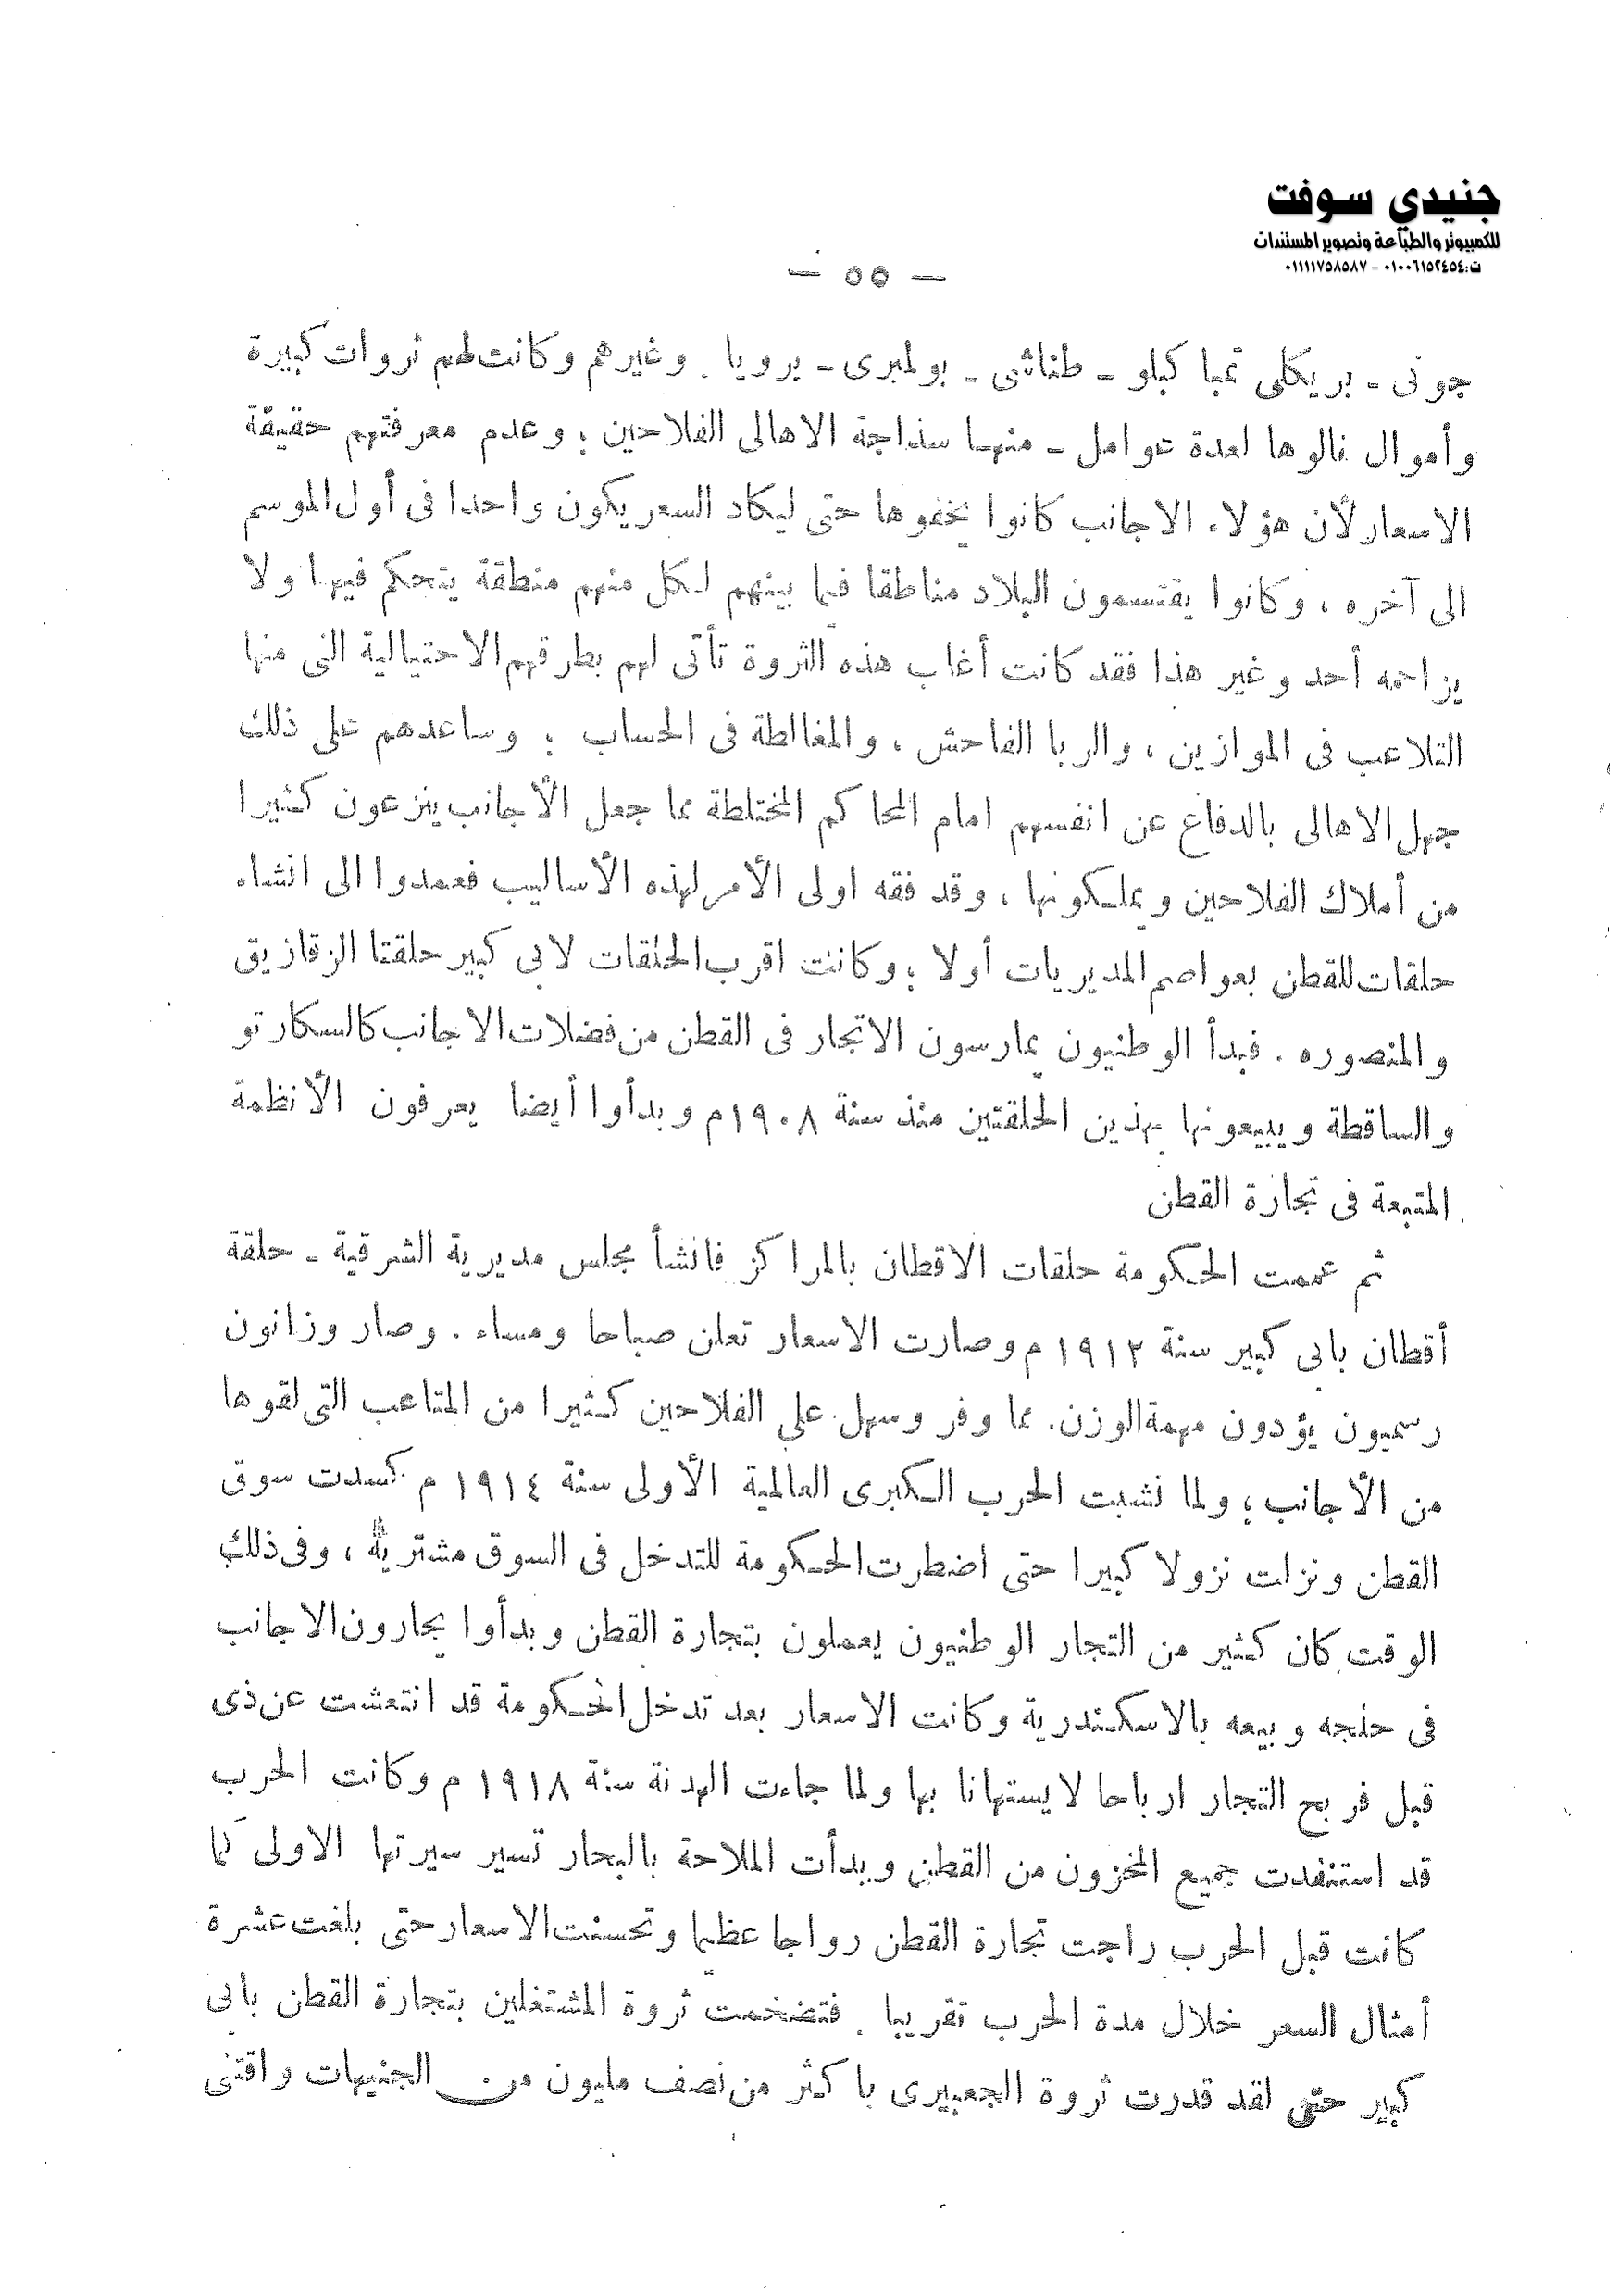 جنيدي سوفت
للكمبيوتر والطباعة وتصوير المستندات
ت:٠١٠٠٦١٥٢٤٥٤ - ٠١١١١٧٥٨٥٨٧
— ٥٥ —
جونى - بريكلى تمبا كبلو - طناشى - بولمبرى - برويا . وغيرهم وكانت لهم ثروات كبيرة
وأموال نالوها لعدة عوامل - منهـا سذاجة الاهالى الفلاحين ؛ وعدم معرفتهم حقيقة
الاسعار لأن هؤلاء الاجانب كانوا يخفوها حتى ليكاد السعر يكون واحدا فى أول الموسم
الى آخره ، وكانوا يقتسمون البلاد مناطقا فيما بينهم لـكل منهم منطقة يتحكم فيهـا ولا
يزاحمه أحد وغير هذا فقد كانت أغاب هذه الثروة تأتى لهم بطرقهم الاحتيالية التى منها
التلاعب فى الموازين ، والربا الفاحش ، والمغالطة فى الحساب ؛ وساعدهم على ذلك
جهل الاهالى بالدفاع عن انفسهم امام المحاكم المختلطة مما جعل الأجانب ينزعون كثيرا
من أملاك الفلاحين ويملـكونها ، وقد فقه اولى الأمر لهذه الأساليب فعمدوا الى انشاء
حلقات للقطن بعواصم المديريات أولا ؛ وكانت اقرب الحلقات لابى كبير حلقتا الزقازيق
والمنصوره . فبدأ الوطنيون يمارسون الاتجار فى القطن من فضلات الاجانب كالسكارتو
والساقطة ويبيعونها بهذين الحلقتين منذ سنة ١٩٠٨م وبدأوا أيضا يعرفون الأنظمة
المتبعة فى تجارة القطن
ثم عممت الحـكومة حلقات الاقطان بالمراكز فانشأ مجلس مديرية الشرقية - حلقة
أقطان بابى كبير سنة ١٩١٢ م وصارت الاسعار تعلن صباحا ومساء . وصار وزانون
رسميون يؤدون مهمة الوزن. مما وفر وسهل على الفلاحين كـثيرا من المتاعب التى لقوها
من الأجانب ؛ ولما نشبت الحرب الـكبرى العالمية الأولى سنة ١٩١٤ م كسدت سوق
القطن ونزلت نزولا كبيرا حتى اضطرت الحـكومة للتدخل فى السوق مشترية ، وفى ذلك
الوقت كان كثير من التجار الوطنيون يعملون بتجارة القطن وبدأوا يجارون الاجانب
فى حلجه وبيعه بالاسكـندرية وكانت الاسعار بعد تدخل الحـكومة قد انتعشت عن ذى
قبل فربح التجار ارباحا لا يستهانا بها ولما جاءت الهدنة سنة ١٩١٨ م وكانت الحرب
قد استنفدت جميع المخزون من القطن وبدأت الملاحة بالبحار تسير سيرتها الاولى كما
كانت قبل الحرب راجت تجارة القطن رواجا عظيما وتحسنت الاسعار حتى بلغت عشرة
أمثال السعر خلال مدة الحرب تقريبا . فتضخمت ثروة المشتغلين بتجارة القطن بابى
كبير حتى لقد قدرت ثروة الجعبيرى باكثر من نصف مليون من الجنيهات واقتنى